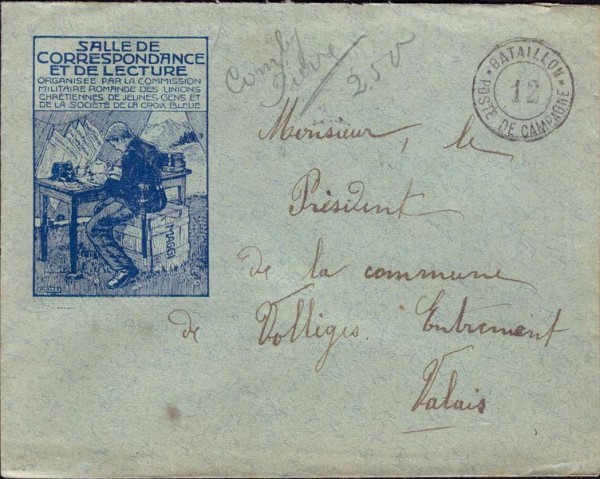 SALLE DE
CORRESPONDANCE
ET DE LECTURE
ORGANISÉE PAR LA COMMISSION
MILITAIRE ROMANDE DES UNIONS
CHRÉTIENNES DE JEUNES GENS ET
DE LA SOCIÉTÉ DE LA CROIX BLEUE
MAGGI
Comby
Pierre
2.50
* BATAILLON *
12
POSTE DE CAMPAGNE
Monsieur, le
Président
de la commune
de Volléges. Entremont
Valais